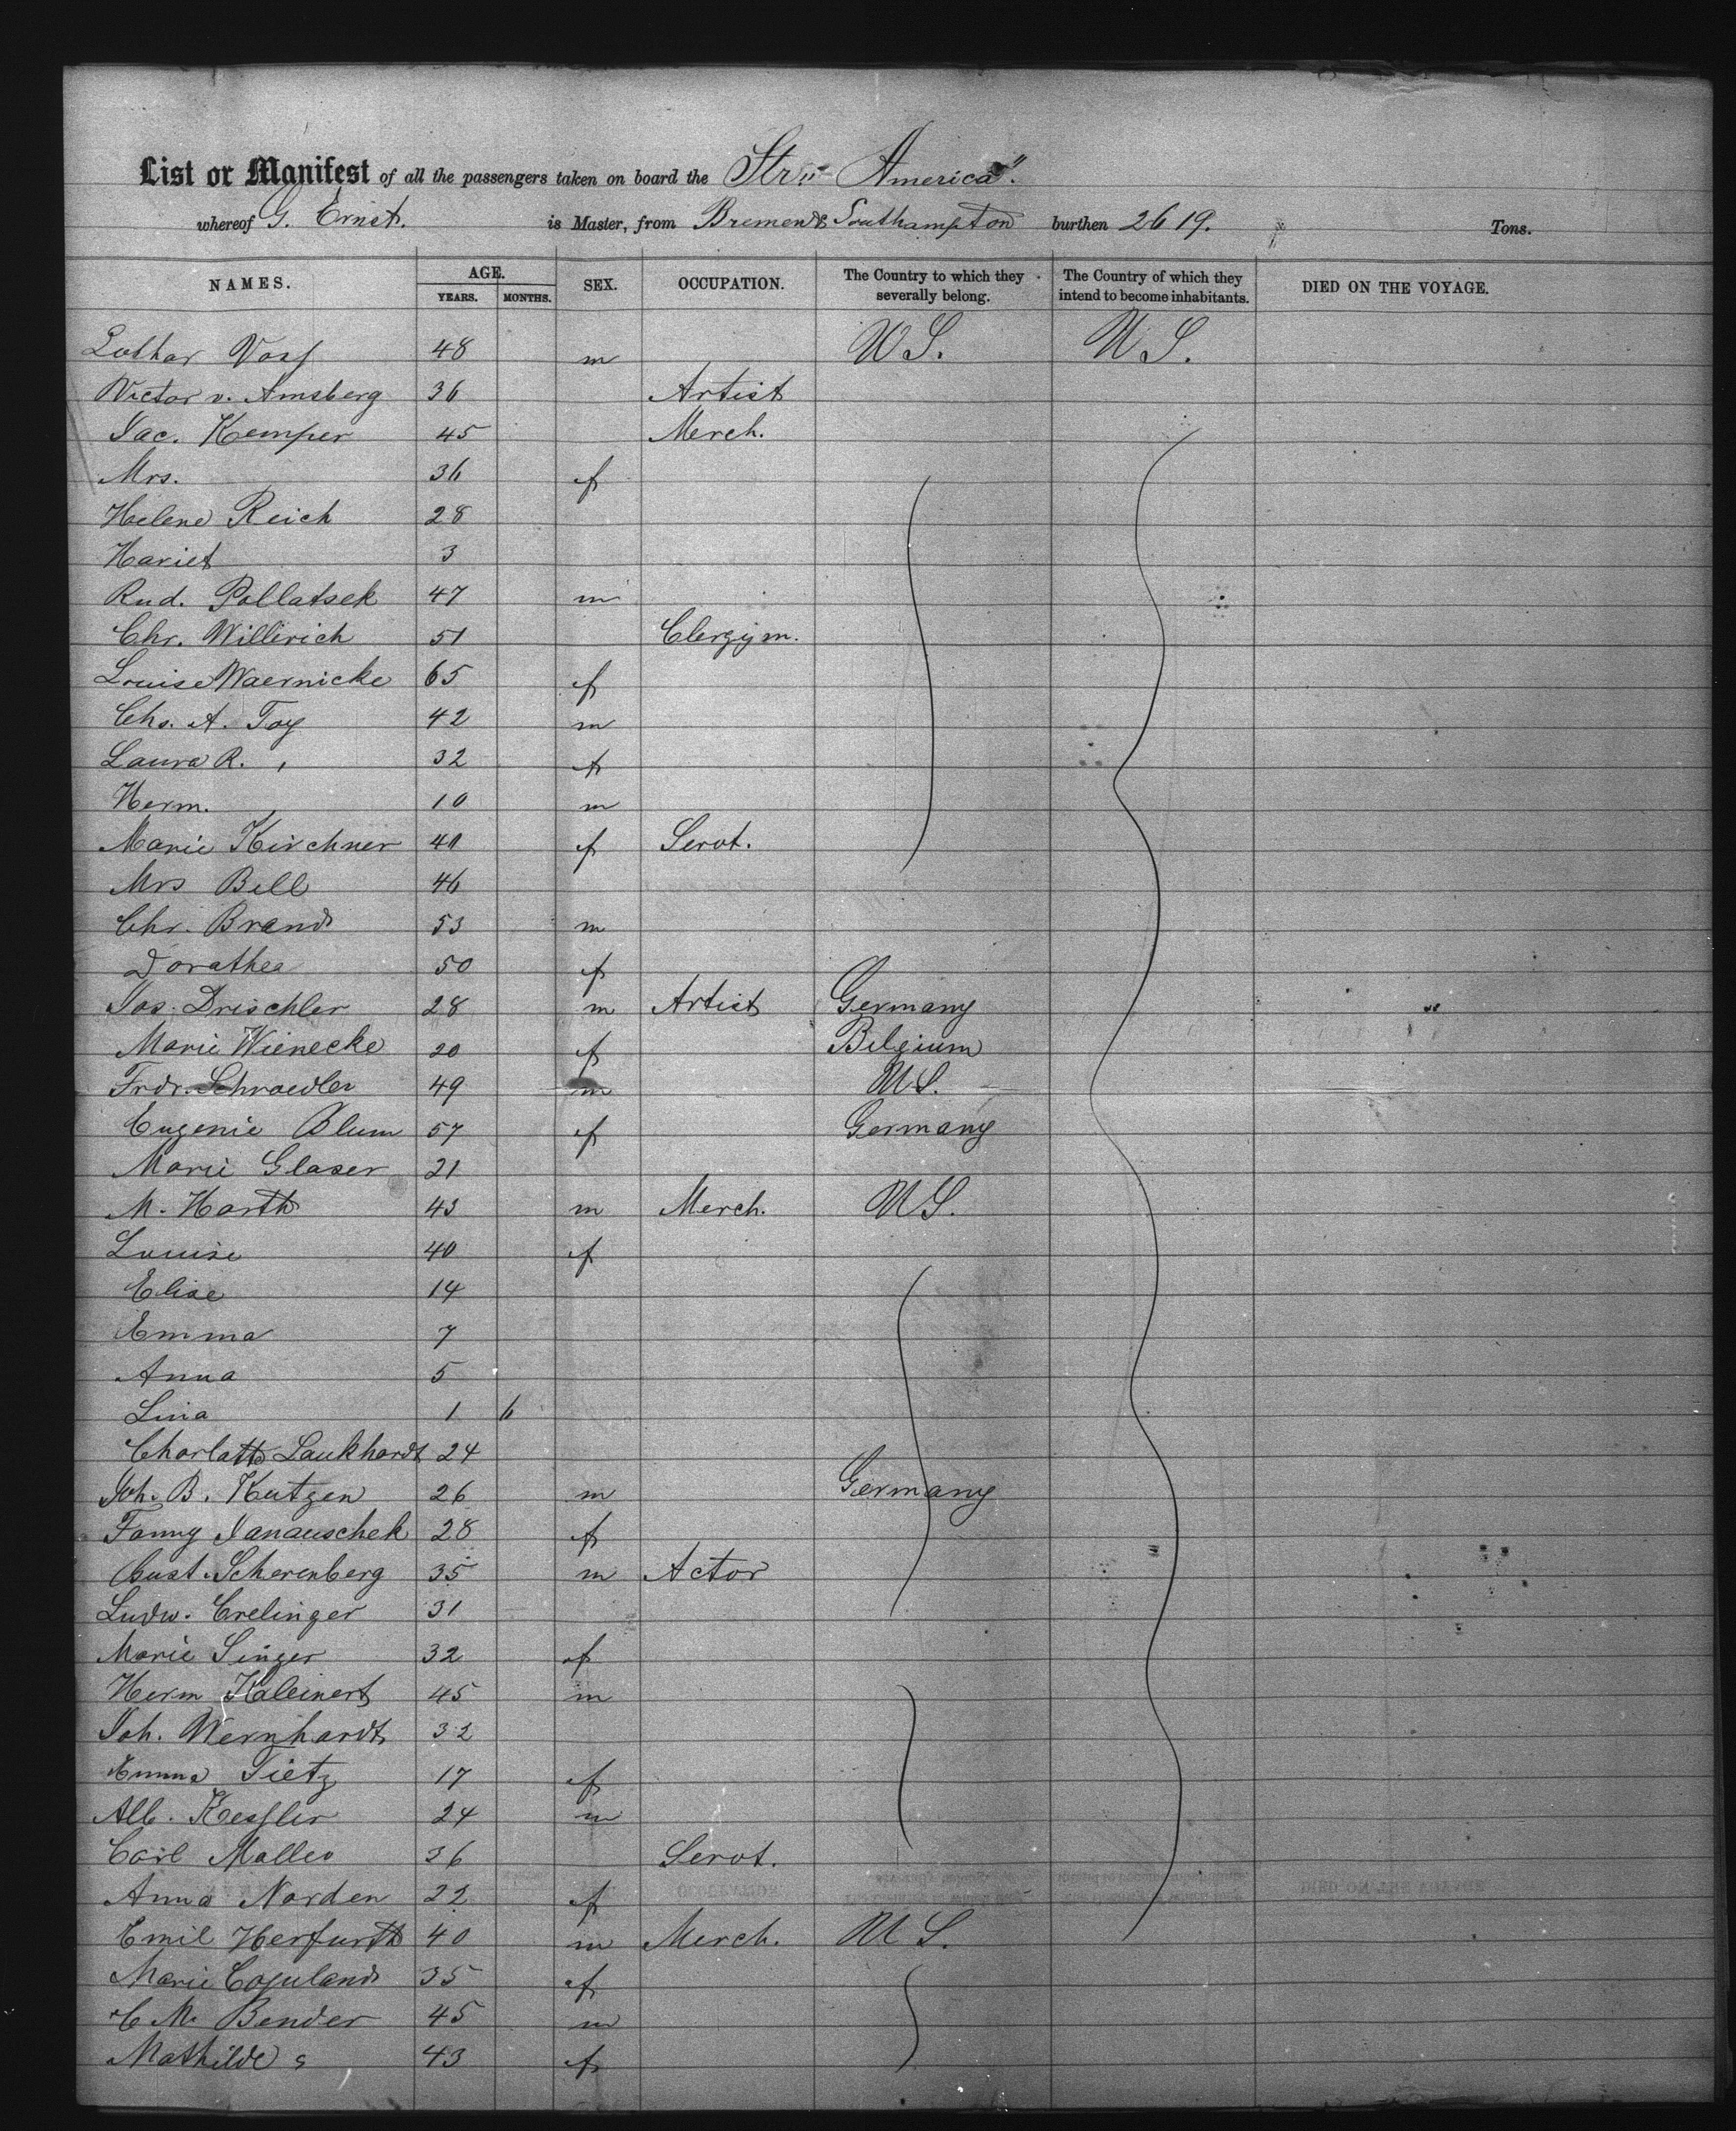 List or Manifest of all the passengers taken on board the Str. "America"
whereof G. Ernst. is Master, from Bremen & Southampton burthen 2619. Tons.
NAMES. AGE. SEX. OCCUPATION. The Country to which they severally belong. The Country of which they intend to become inhabitants. DIED ON THE VOYAGE.
YEARS. MONTHS.
Lothar Voss 48 m U S. U S.
Victor v. Amsberg 36 Artist
Jac. Kemper 45 Merch.
Mrs. 36 f
Helene Reich 28
Hariet 3
Rud. Pollatsek 47 m
Chr. Willerich 51 Clergym.
Louise Waernicke 65 f
Chs. A. Toy 42 m
Laura R. " 32 f
Herm. " 10 m
Marie Kirchner 40 f Servt.
Mrs Bell 46
Chr. Brand 53 m
Dorathea 50 f
Jos. Drischler 28 m Artist Germany
Marie Wienecke 20 f Belgium
Frdr. Schroedler 49 m U S.
Eugenie Blum 57 f Germany
Marie Glaser 21
M. Harth 43 m Merch. U S.
Louise 40 f
Elise 14
Emma 7
Anna 5
Lina 1 6
Charlotte Laukhardt 24
Joh. B. Kutzen 26 m Germany
Fanny Janauschek 28 f
Gust. Scherenberg 35 m Actor
Ludw. Crelinger 31
Marie Singer 32 f
Herm Kaleinert 45 m
Joh. Wernhardt 32
Emma Tietz 17 f
Alb. Kessler 24 m
Carl Malleo 36 Servt.
Anna Norden 22 f
Emil Herfurth 40 m Merch. U S.
Marie Copuland 35 f
C M. Bender 45 m
Mathilde " 43 f